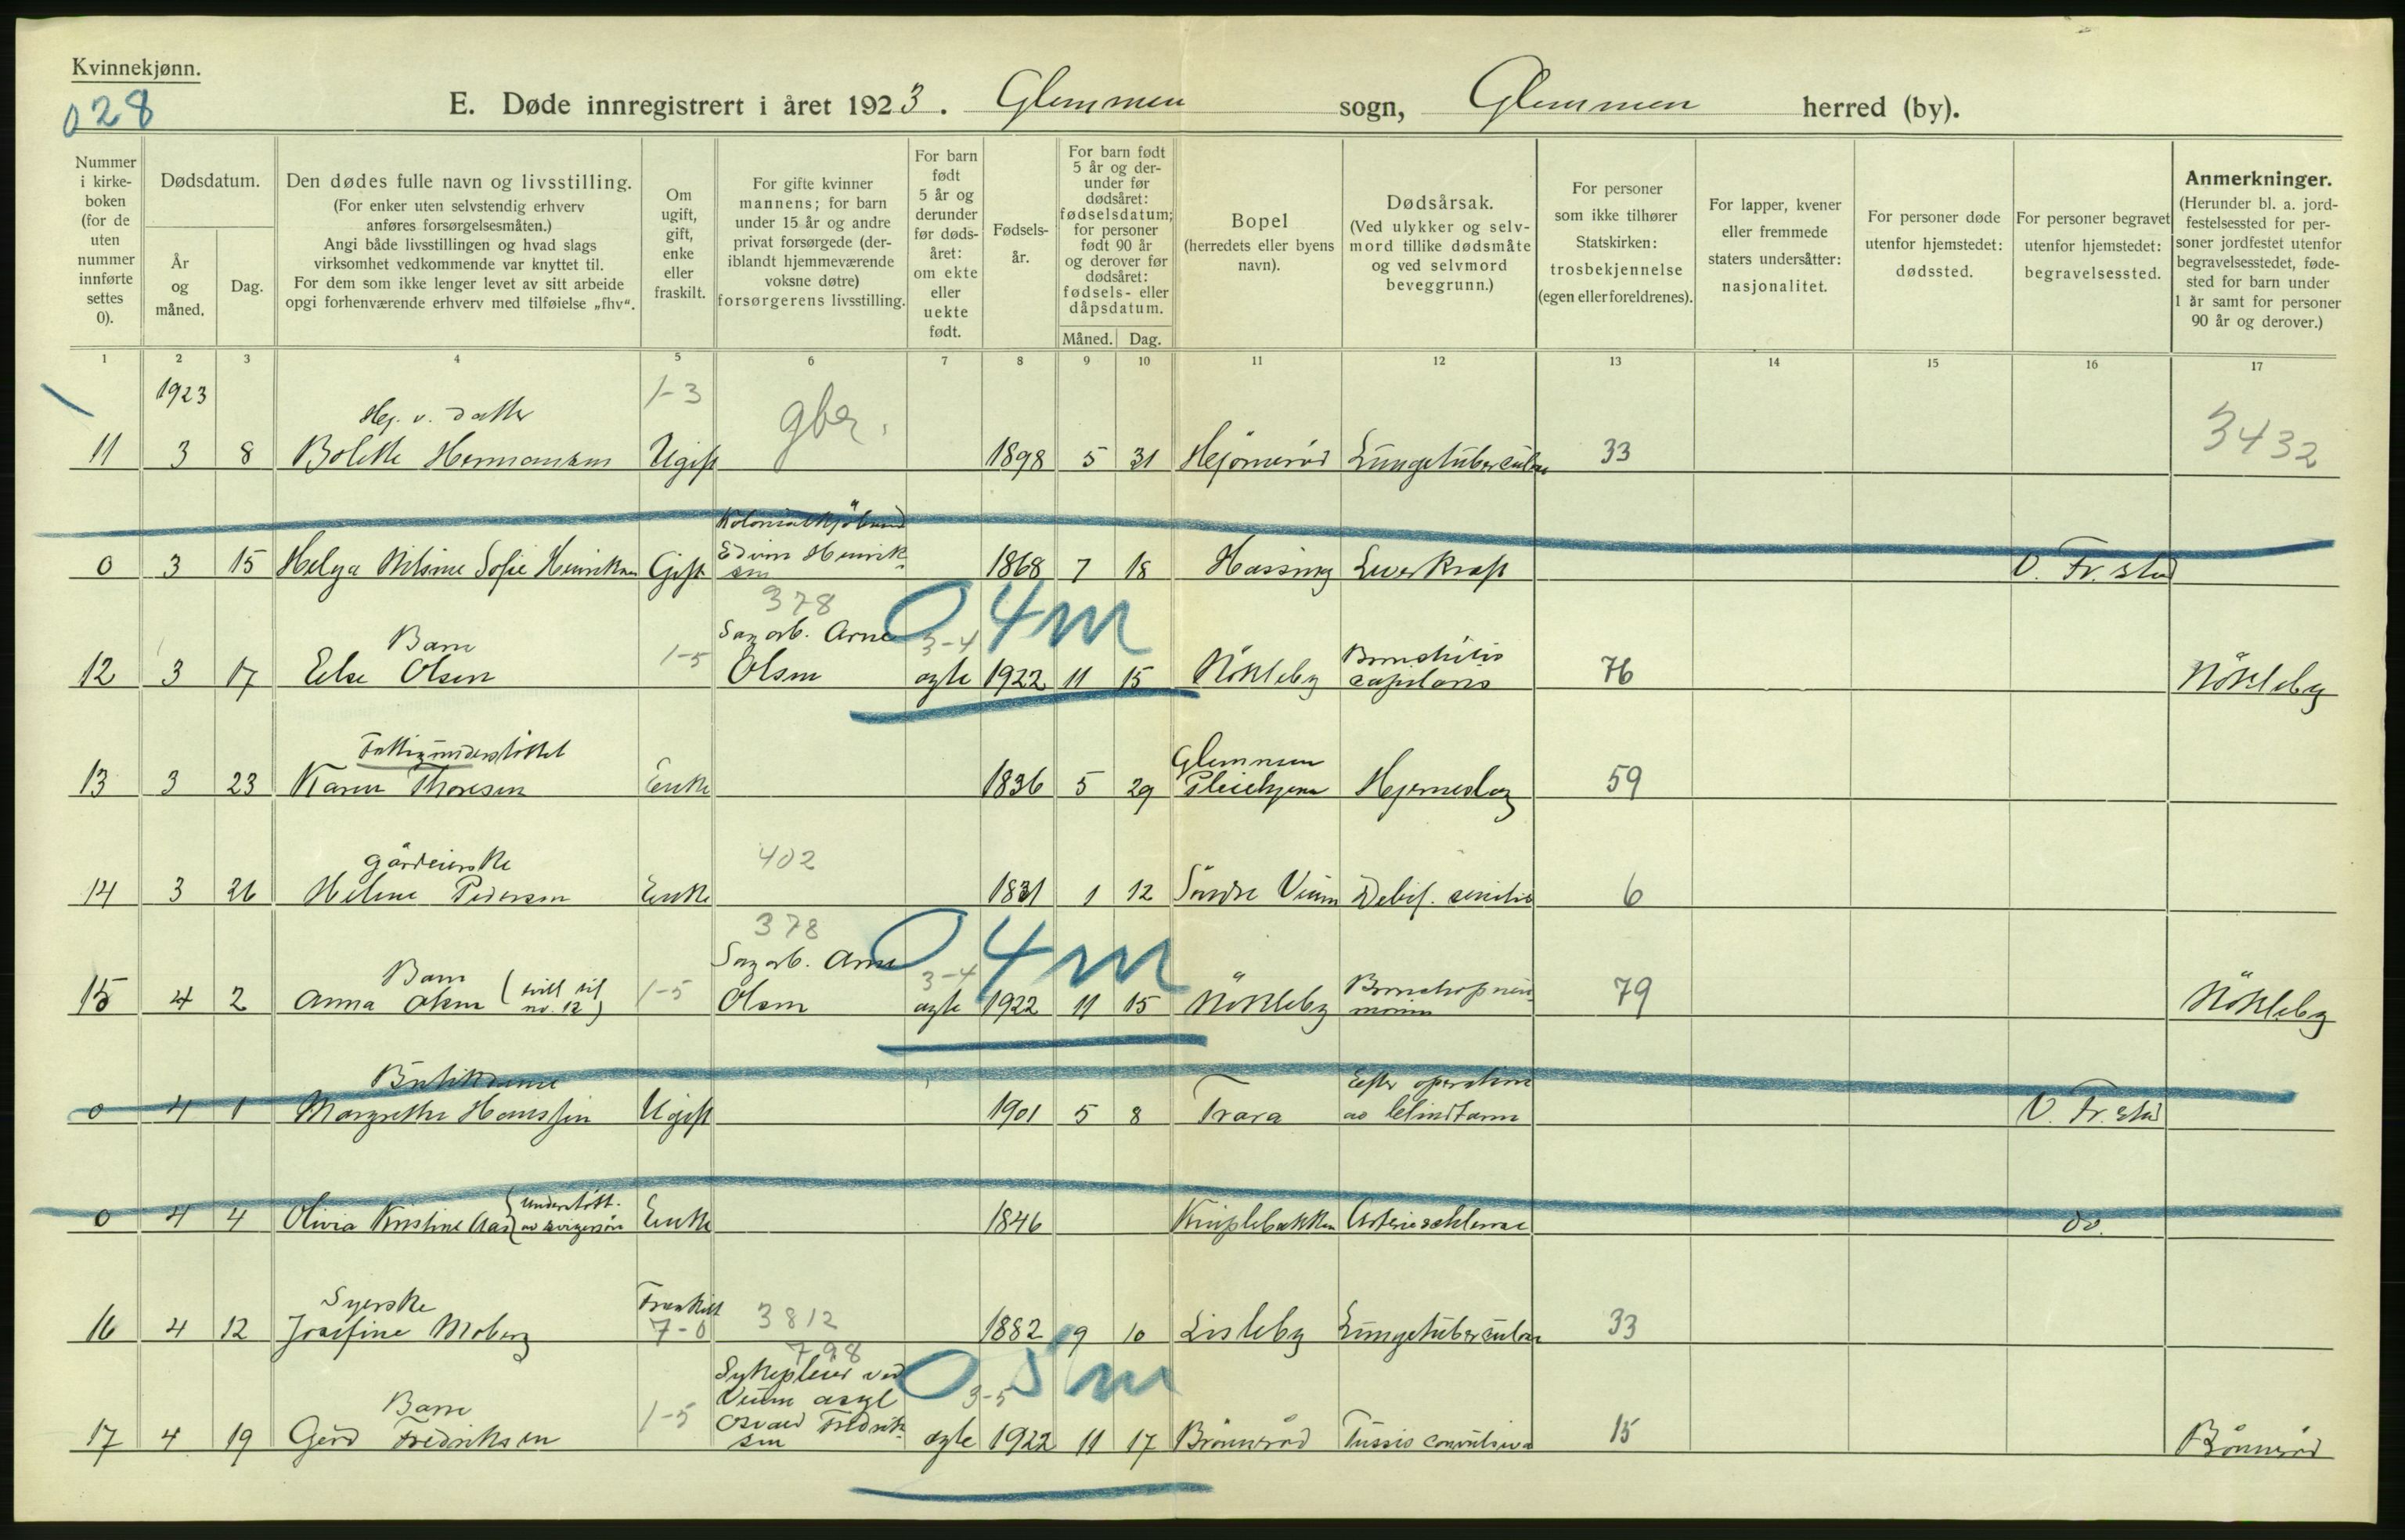 Kvinnekjønn.
028
E. Døde innregistrert i året 1923. Glemmen sogn, Glemmen herred (by).
Nummer i kirkeboken (for de uten nummer innførte settes 0).
Dødsdatum.
År og måned.
Dag.
Den dødes fulle navn og livsstilling.
(For enker uten selvstendig erhverv anføres forsørgelsesmåten.)
Angi både livsstillingen og hvad slags virksomhet vedkommende var knyttet til.
For dem som ikke lenger levet av sitt arbeide opgi forhenværende erhverv med tilføielse „fhv“.
Om ugift, gift, enke eller fraskilt.
For gifte kvinner mannens; for barn under 15 år og andre privat forsørgede (deriblandt hjemmeværende voksne døtre) forsørgerens livsstilling.
For barn født 5 år og derunder før dødsåret: om ekte eller uekte født.
Fødselsår.
For barn født 5 år og derunder før dødsåret: fødselsdatum; for personer født 90 år og derover før dødsåret: fødsels- eller dåpsdatum.
Måned. Dag.
Bopel (herredets eller byens navn).
Dødsårsak.
(Ved ulykker og selvmord tillike dødsmåte og ved selvmord beveggrunn.)
For personer som ikke tilhører Statskirken: trosbekjennelse (egen eller foreldrenes).
For lapper, kvener eller fremmede staters undersåtter: nasjonalitet.
For personer døde utenfor hjemstedet: dødssted.
For personer begravet utenfor hjemstedet: begravelsessted.
Anmerkninger.
(Herunder bl. a. jordfestelsessted for personer jordfestet utenfor begravelsesstedet, fødested for barn under 1 år samt for personer 90 år og derover.)
1 2 3 4 5 6 7 8 9 10 11 12 13 14 15 16 17
1923
Hej. v. datter 1-3 gbr. 3432
11 3 8 Bolette Hermansen Ugift 1898 5 31 Lungetuberculose 33
Kolonialkjøbmand
0 3 15 Helga Nilsine Sofie Henriksen Gift Edvin Henriksen 1868 7 18 Hassing Leverkræft V. Fr.stad
378 0 4 m
Barn 1-5 Sagarb. Arne 3-4 Bronchitis
12 3 17 Else Olsen Olsen egte 1922 11 15 Nökleby capilaris 76 Nökleby
Fattigunderstöttet Glemmen
13 3 23 Karen Thoresen Enke 1836 5 29 Pleiehjem Hjerneslag 59
Gårdeierske 402
14 3 26 Helene Pedersen Enke 1831 1 12 Söndre Veum Debil. senilis 6
378 0 4 m
Barn 1-5 Sagarb. Arne 3-4 Bronchopneu-
15 4 2 Anna Olsen (tvill. til no. 12) Olsen egte 1922 11 15 Nökleby monia 79 Nökleby
Butikdame Efter operation
0 4 1 Margrethe Hanssen Ugift 1901 5 8 Trara av blindtarm V. Fr.stad
0 4 4 Olivia Kristine Aas (understött. av svigersön Enke 1846 Kniplebakken Arteriosklerose do.
Syerske Fraskilt
16 4 12 Josefine Moberg 7-0 3812 1882 9 10 Lisleby Lungetuberculose 33
798 0 5 m
Barn 1-5 Sykepleier ved Veum asyl 3-5
17 4 19 Gerd Fredriksen Osvald Fredriksen egte 1922 11 17 Brönneröd Tussis convulsiva 15 Brönneröd